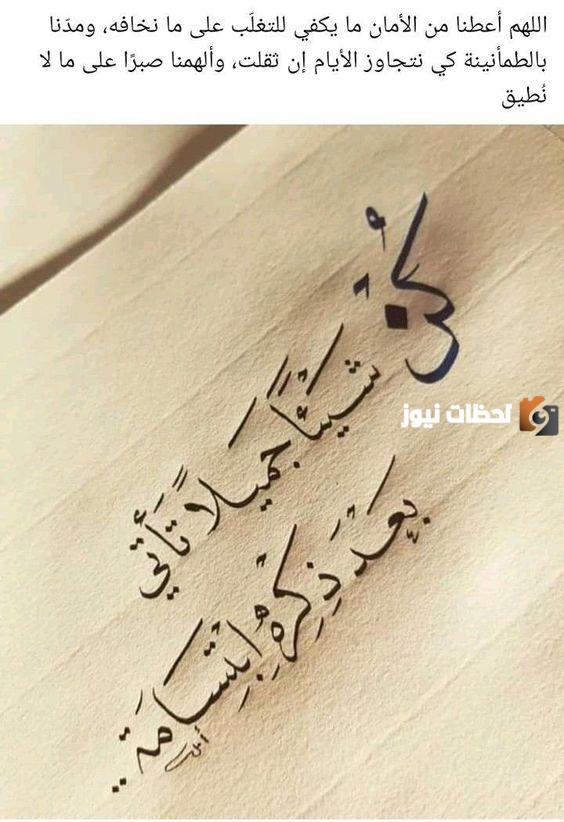 اللهم أعطنا من الأمان ما يكفي للتغلّب على ما نخافه، ومدّنا
بالطمأنينة كي نتجاوز الأيام إن ثقلت، وألهمنا صبرًا على ما لا
نُطيق
كُنْ
شَيْئاً جَمِيلاً تَأتي
لحظات نيوز
بَعْدَ ذِكْرِهِ ابْتِسَامَة..